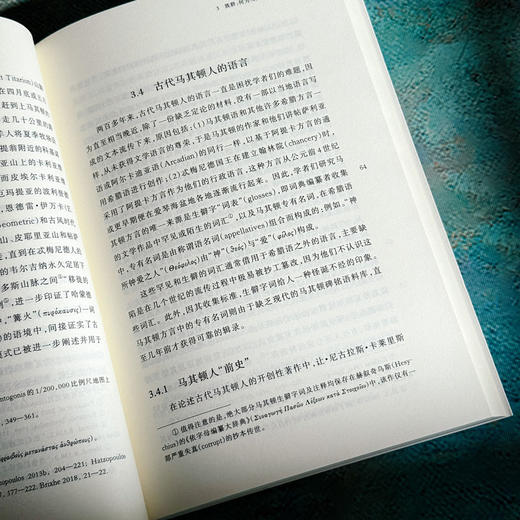 t Titarion)山
在四月底或
赶到上马其顿
走几十公里的
羊人将夏季牧
提前附近的
亚山上的卡利亚
而皮埃尔卡利亚
厄玛提亚的波利
,恩德雷·伊万卡
Geometric)和古风时代
山、皮耶里亚山和帕
,直到在忒梅尼德人
的韦尔吉纳永久定居下
多斯山脉之间”移徙的
,进一步印证了哈蒙德
,“篝火”(πυρόκαυσις)
的语境中,间接证实了古
模式已被进一步阐述并用于
antogonis 的 1/200,000 比例尺地图上
,349—361。
opoulos 2013b, 204—221; Hatzopoulos
,177—22. Brixhe 2018, 21—22.
3 族群:何为
3.4 古代马其顿人的语言
两百多年来,古代马其顿人的语言一直是困扰学者们的难题,因
为直至相当晚近,除了一份缺乏定论的材料,没有一部以当地语言写
成的文本流传下来,原因包括:(1)马其顿语和其他许多希腊方言一
样,从未获得文学语言的尊荣,于是马其顿的作家和他们讲帕萨利亚
语或阿尔卡迪亚语(Arcadian)的同行一样,以基于阿提卡方言的通
用希腊语进行创作;(2)忒梅尼德王在建立翰林院(chancery)时,
采用了阿提卡方言作为他们的行政语言,这种方言从公元前4世纪
或更早期便在爱琴海盆地各地逐渐流行起来。因此,学者们研究马
其顿方言的唯一来源是生僻字“词表”(glosses),即词典编纂者收集
的文学作品中罕见或陌生的词汇①,以及马其顿专有名词,在希腊语
中,专有名词是由称谓语名词(appellatives)组合而构成的;例如,“神
所钟爱之人”(Θεόφιλος)由“神”(θεός)与“爱”(φίλος)构成。
64
这些罕见和生僻的词汇通常借用于希腊语之外的语言,主要缺
陷是在几个世纪的流传过程中极易被抄工篡改,因为他们不认识这
些词汇。此外,因其收集标准,生僻词给人一种怪诞不经的印象。
马其顿方言中的专有名词则由于缺乏现代的马其顿碑铭语料库,直
至几年前才获得可靠的辑录。
3.4.1 马其顿人“前史”
在论述古代马其顿人的开创性著作中,让·尼古拉斯·卡莱里斯
① 值得注意的是,绝大部分马其顿生僻字词及注释均保存在赫叙奇乌斯(Hesy-
chius)的《依字母编纂大辞典》(Συναγωγὴ Πασῶν Λέξεων κατὰ Στοιχεῖον)中,该作仅有一
部严重失真(corrupt)的抄本传世。